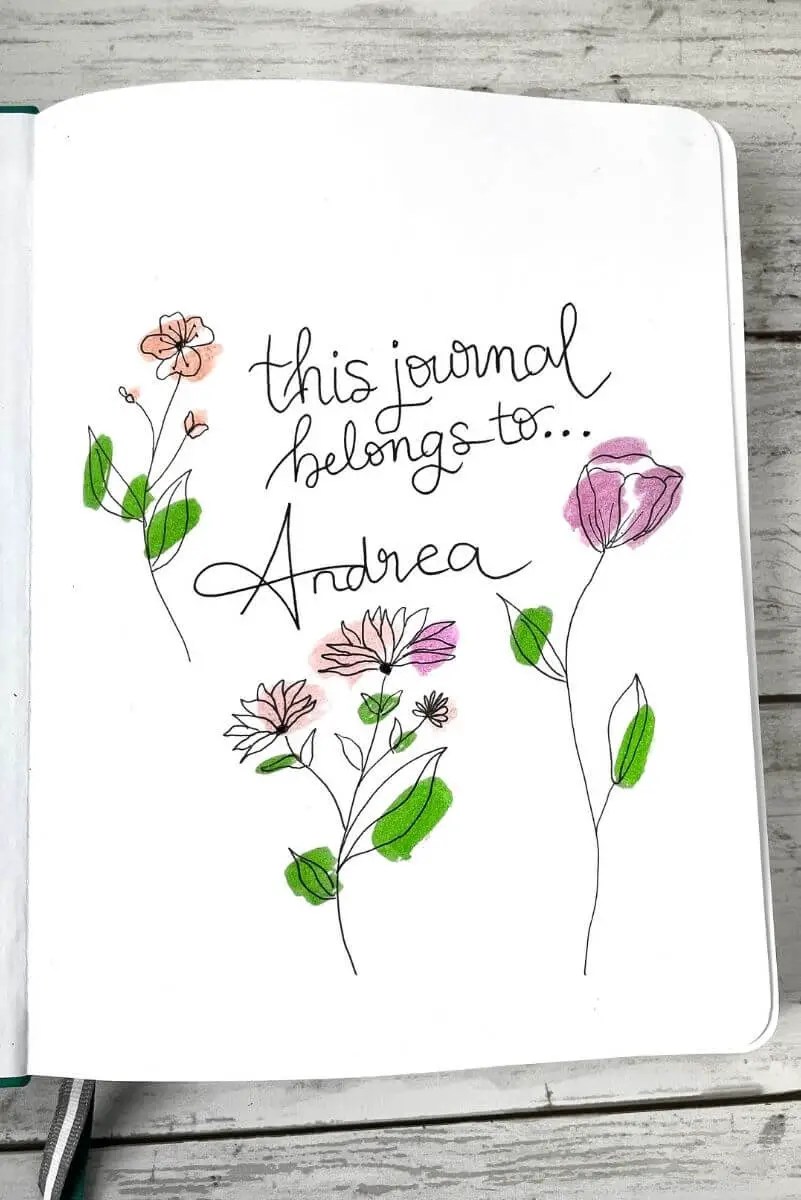 this journal
belongs to...
Andrea